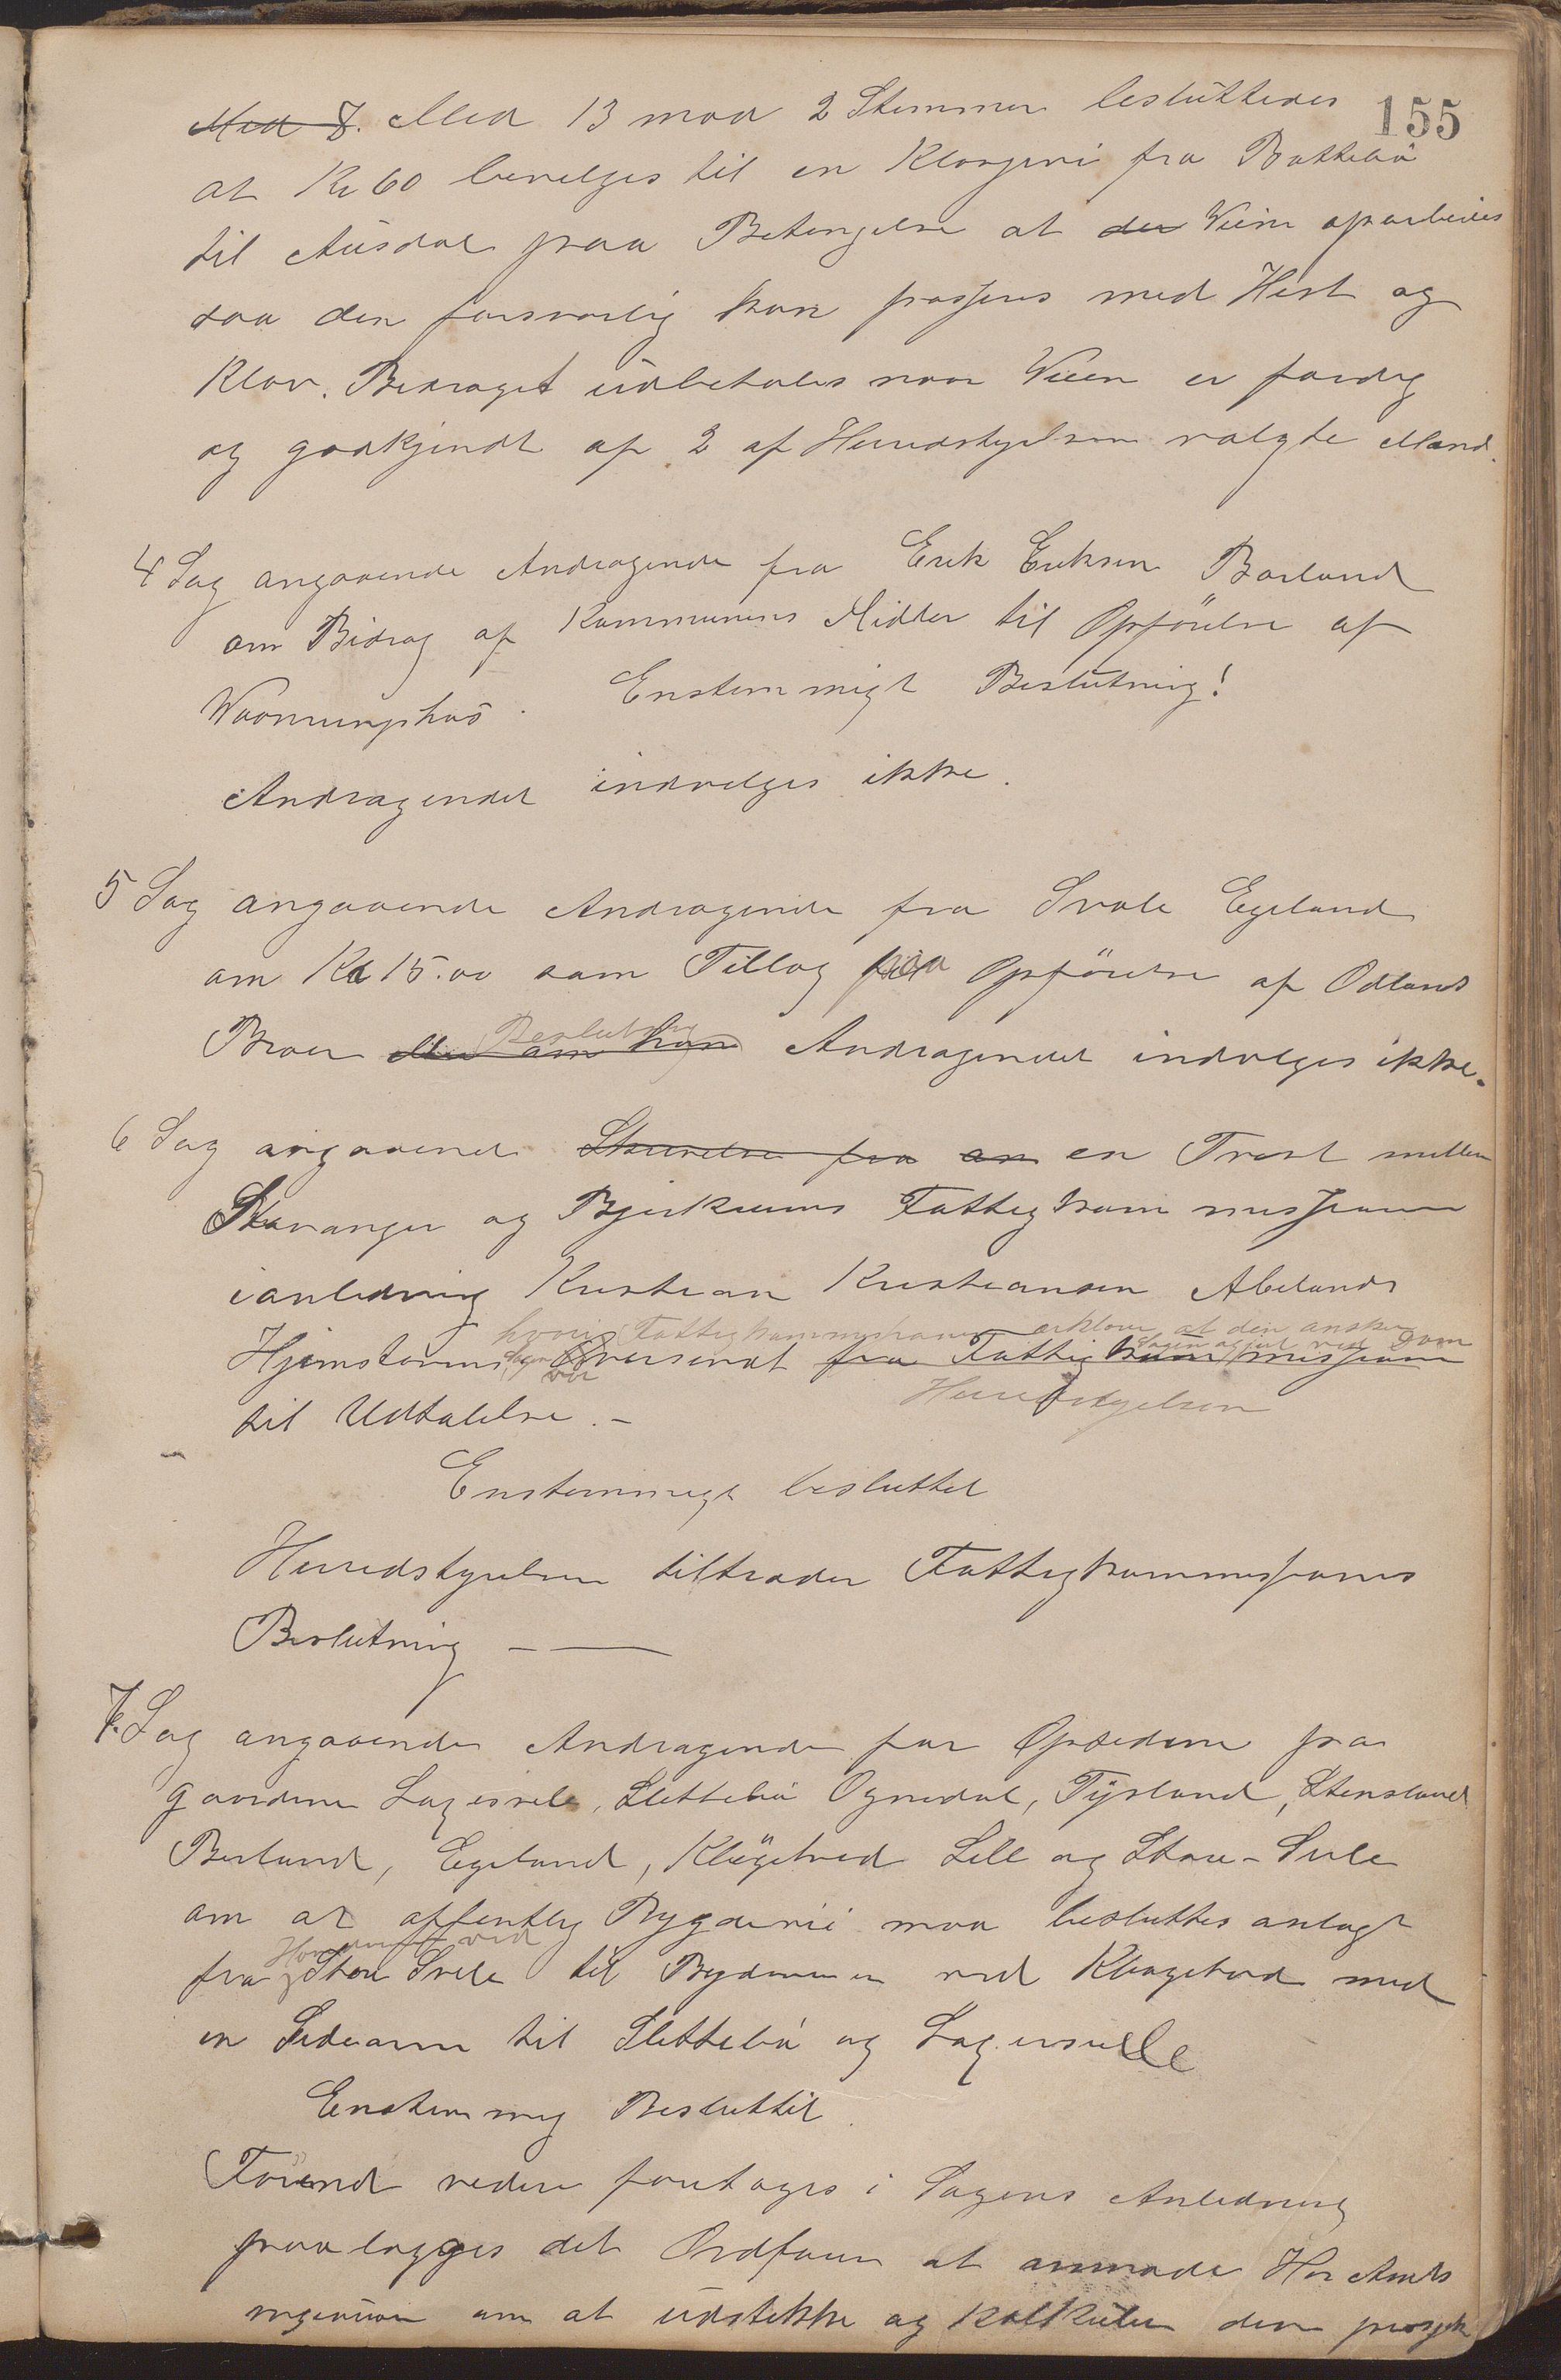 155
Med 8. Med 13 mod 2 Stemmer besluttedes
at Kr 60 bevilges til en Klovjevei fra Bottebö
til Ausdal paa Betingelse at der Veien oparbeides
saa den forsvarlig kan passeres med Hest og
Klov. Bidraget udbetales naar Veien er færdig
og godkjendt af 2 af Herredstyrelsen valgte Mænd.
4 Sag angaaende Andragende fra Erik Eriksen Bærland
om Bidrag af Kommunens Midler til Opförelse af
Vaaningshus. Enstemmigt Beslutning!
Andragendet indvilges ikke.
5 Sag angaaende Andragende fra Svale Egeland
om Kr 15.00 som Tillæg paa Opförelse af Odlands
Beslutning
Broen Andragendet indvilges ikke.
6 Sag angaaende Skrivelse fra en en Tvist mellem
Stavanger og Bjerkreims Fattigkommission
ianledning Kristian Kristiansen Abelands
hvori Fattigkommissionen erklærer at den ønsker
Sagen afgjort ved Dom
Hjemstavns Oversendt fra Fattigkommission
Herredstyrelsen
til Udtalelse.-
Enstemmigt besluttet
Herredstyrelsen tiltræder Fattigkommissions
Beslutning - —
7. Sag angaaende Andragende fra Opsidderne paa
gaardene Lagersvele, Slettebö Ognedal, Tjørland, Stensland
Berland, Egeland, Klögetved Lille og Store-Svele
om at offentlig Bygdevei maa besluttes anlagt
Hovedveien ved
fra Store Svele til Bygdeveien ved Klögetved med
en Sidearm til Slettebö og Lagersvelle
Enstemmig Besluttet.
Forend videre foretages i Sagens Anledning
paalægges det Ordføren at anmode Hr Amts
ingeniøren om at udstikke og kalkulere den